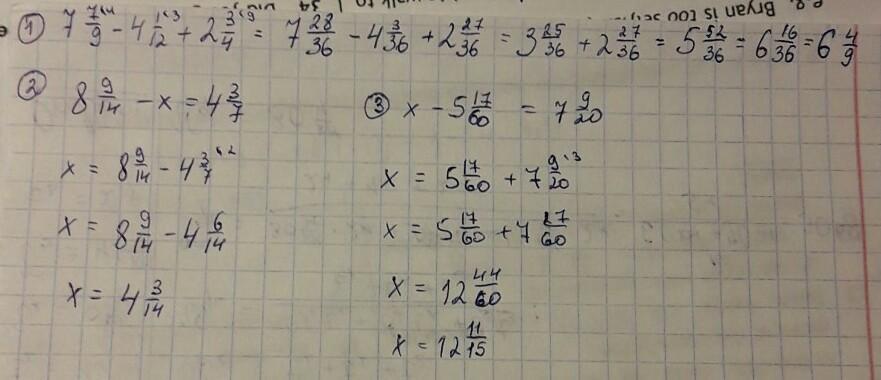 ① 7 7/9 - 4 1/12 + 2 3/4 = 7 28/36 - 4 3/36 + 2 27/36 = 3 25/36 + 2 27/36 = 5 52/36 = 6 16/36 = 6 4/9
② 8 9/14 - x = 4 3/7
x = 8 9/14 - 4 3/7 ·2
x = 8 9/14 - 4 6/14
x = 4 3/14
③ x - 5 17/60 = 7 9/20
x = 5 17/60 + 7 9/20 ·3
x = 5 17/60 + 7 27/60
x = 12 44/60
x = 12 11/15
Bryan is too